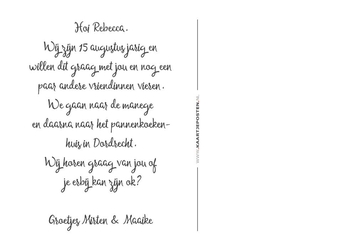 Hoi Rebecca.
Wij zijn 15 augustus jarig en
willen dit graag met jou en nog een
paar andere vriendinnen vieren.
We gaan naar de manege
en daarna naar het pannenkoeken-
huis in Dordrecht.
Wij horen graag van jou of
je erbij kan zijn ok?
Groetjes Mirten & Maaike
www.KAARTJEPOSTEN.nl